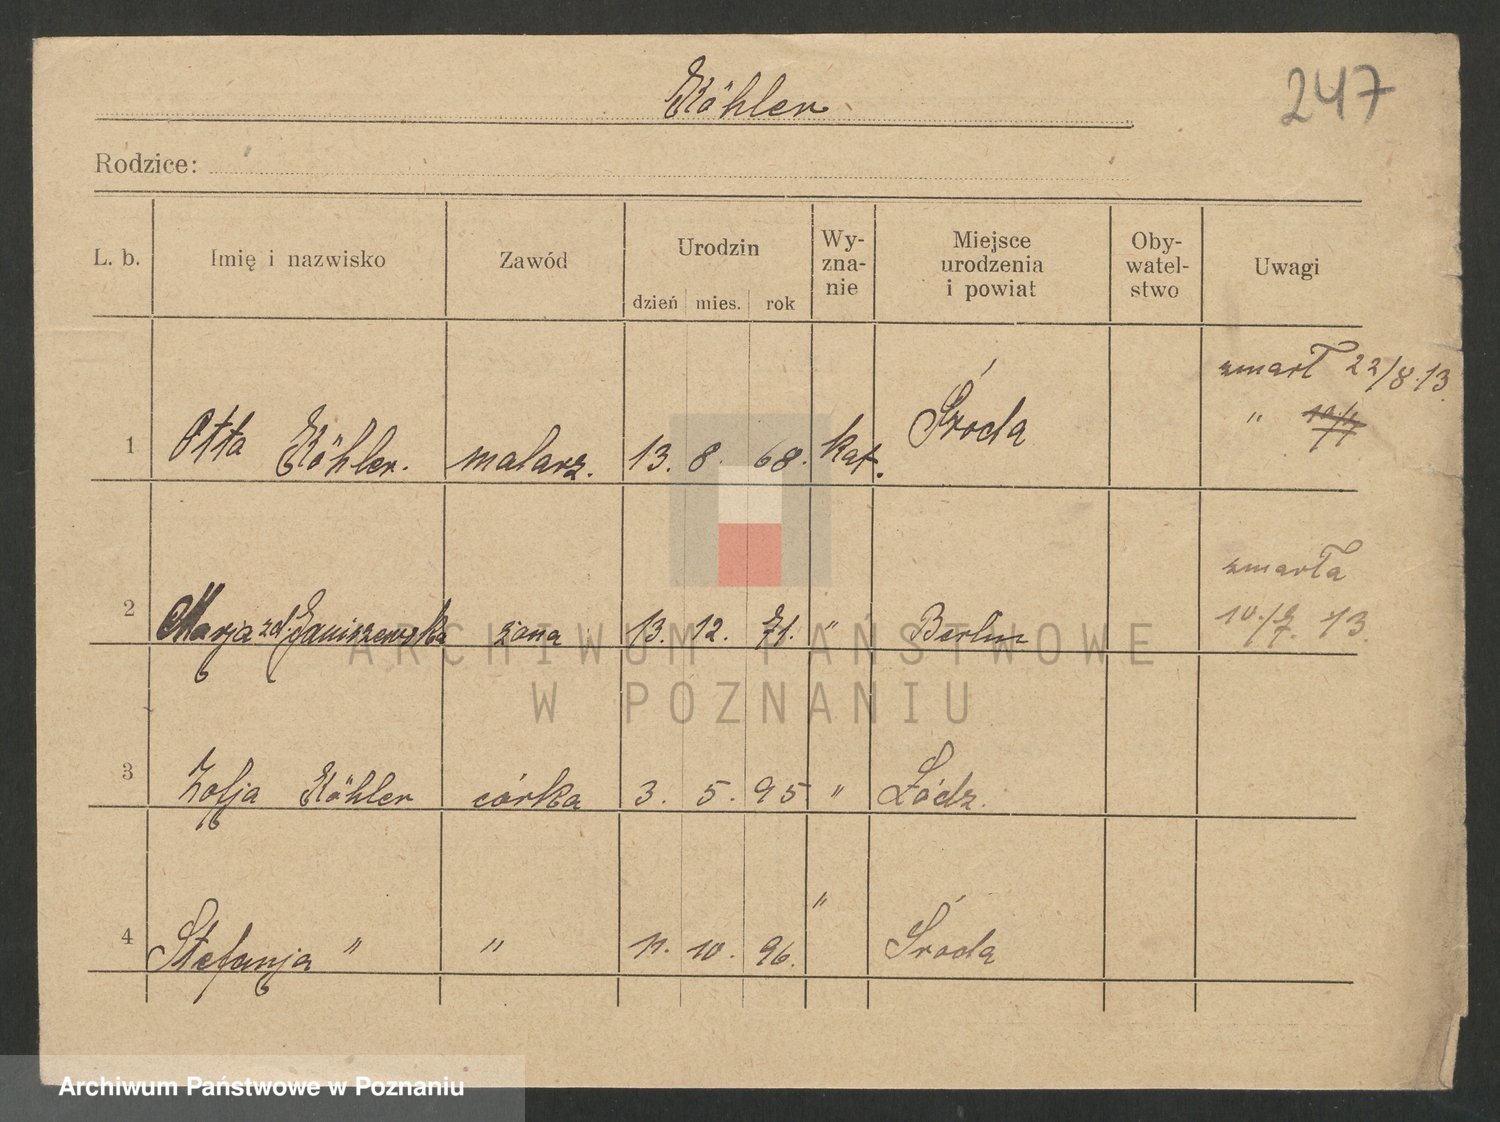 Köhler
247
Rodzice:
L. b. Imię i nazwisko Zawód Urodzin dzień mies. rok Wy-zna-nie Miejsce urodzenia i powiat Oby-watel-stwo Uwagi
zmarł 22/8.13.
1 Otta Köhler. malarz. 13. 8. 68. kat. Środa "
zmarła
2 Marja zd. Janiszewska żona 13. 12. 71. " Berlin 10./7. 13.
3 Zofja Köhler córka 3. 5. 95 " Łódz.
4 Stefanja " " 11. 10. 96. " Środa
ARCHIWUM PAŃSTWOWE
W POZNANIU
Archiwum Państwowe w Poznaniu